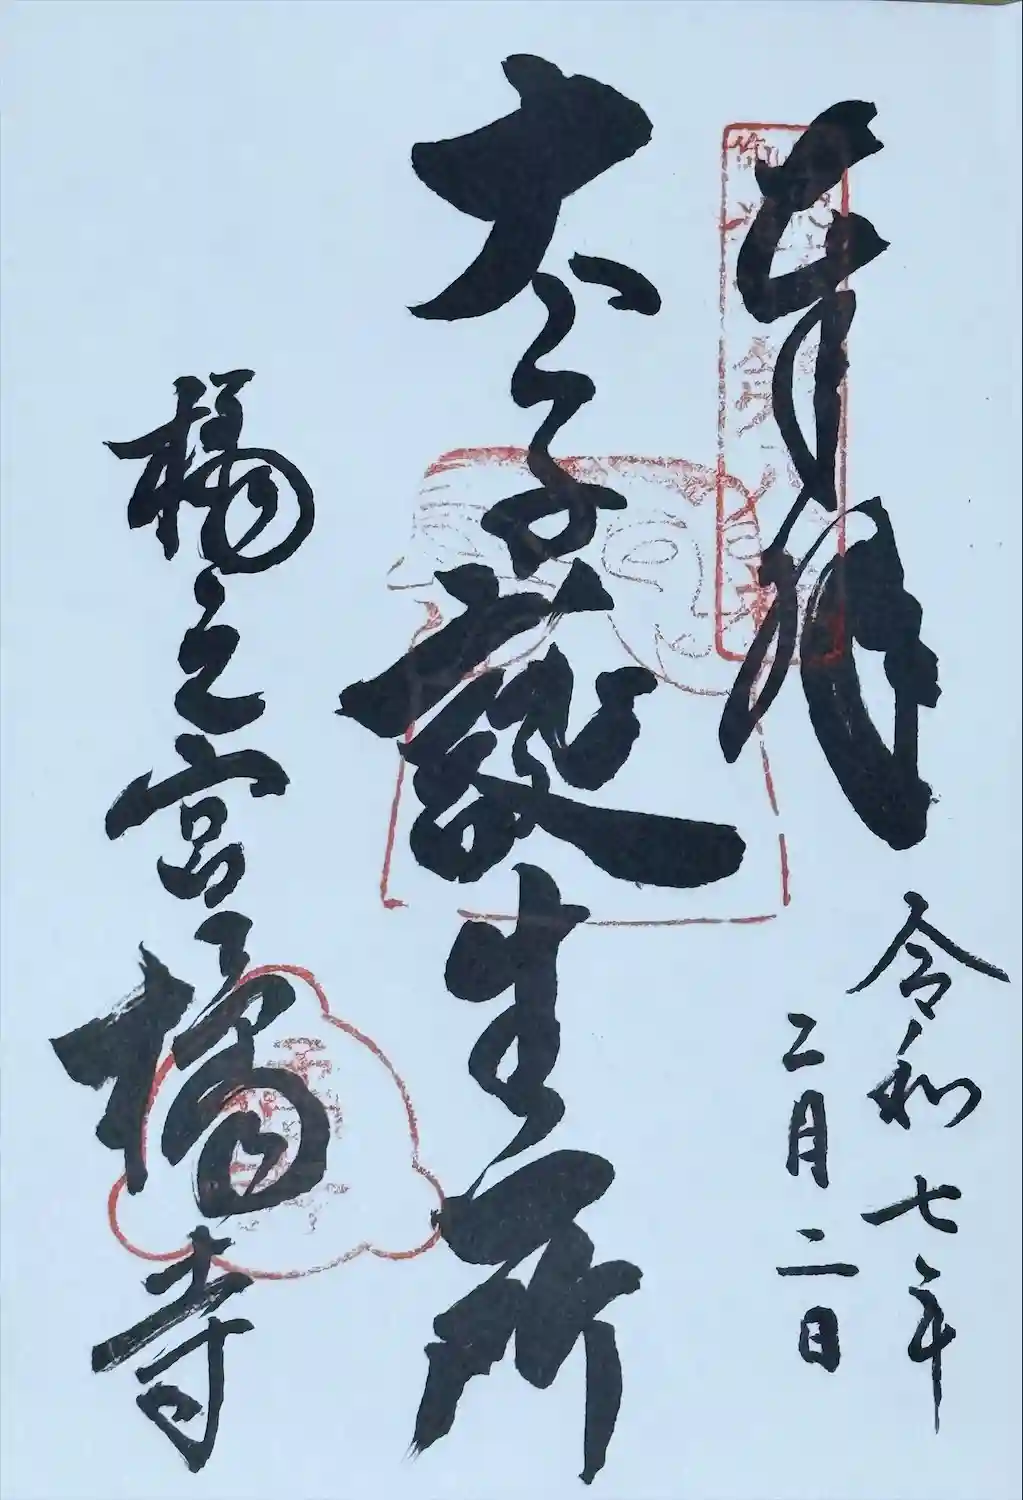 奉拝
令和七年
二月二日
太子誕生所
橘之宮橘寺